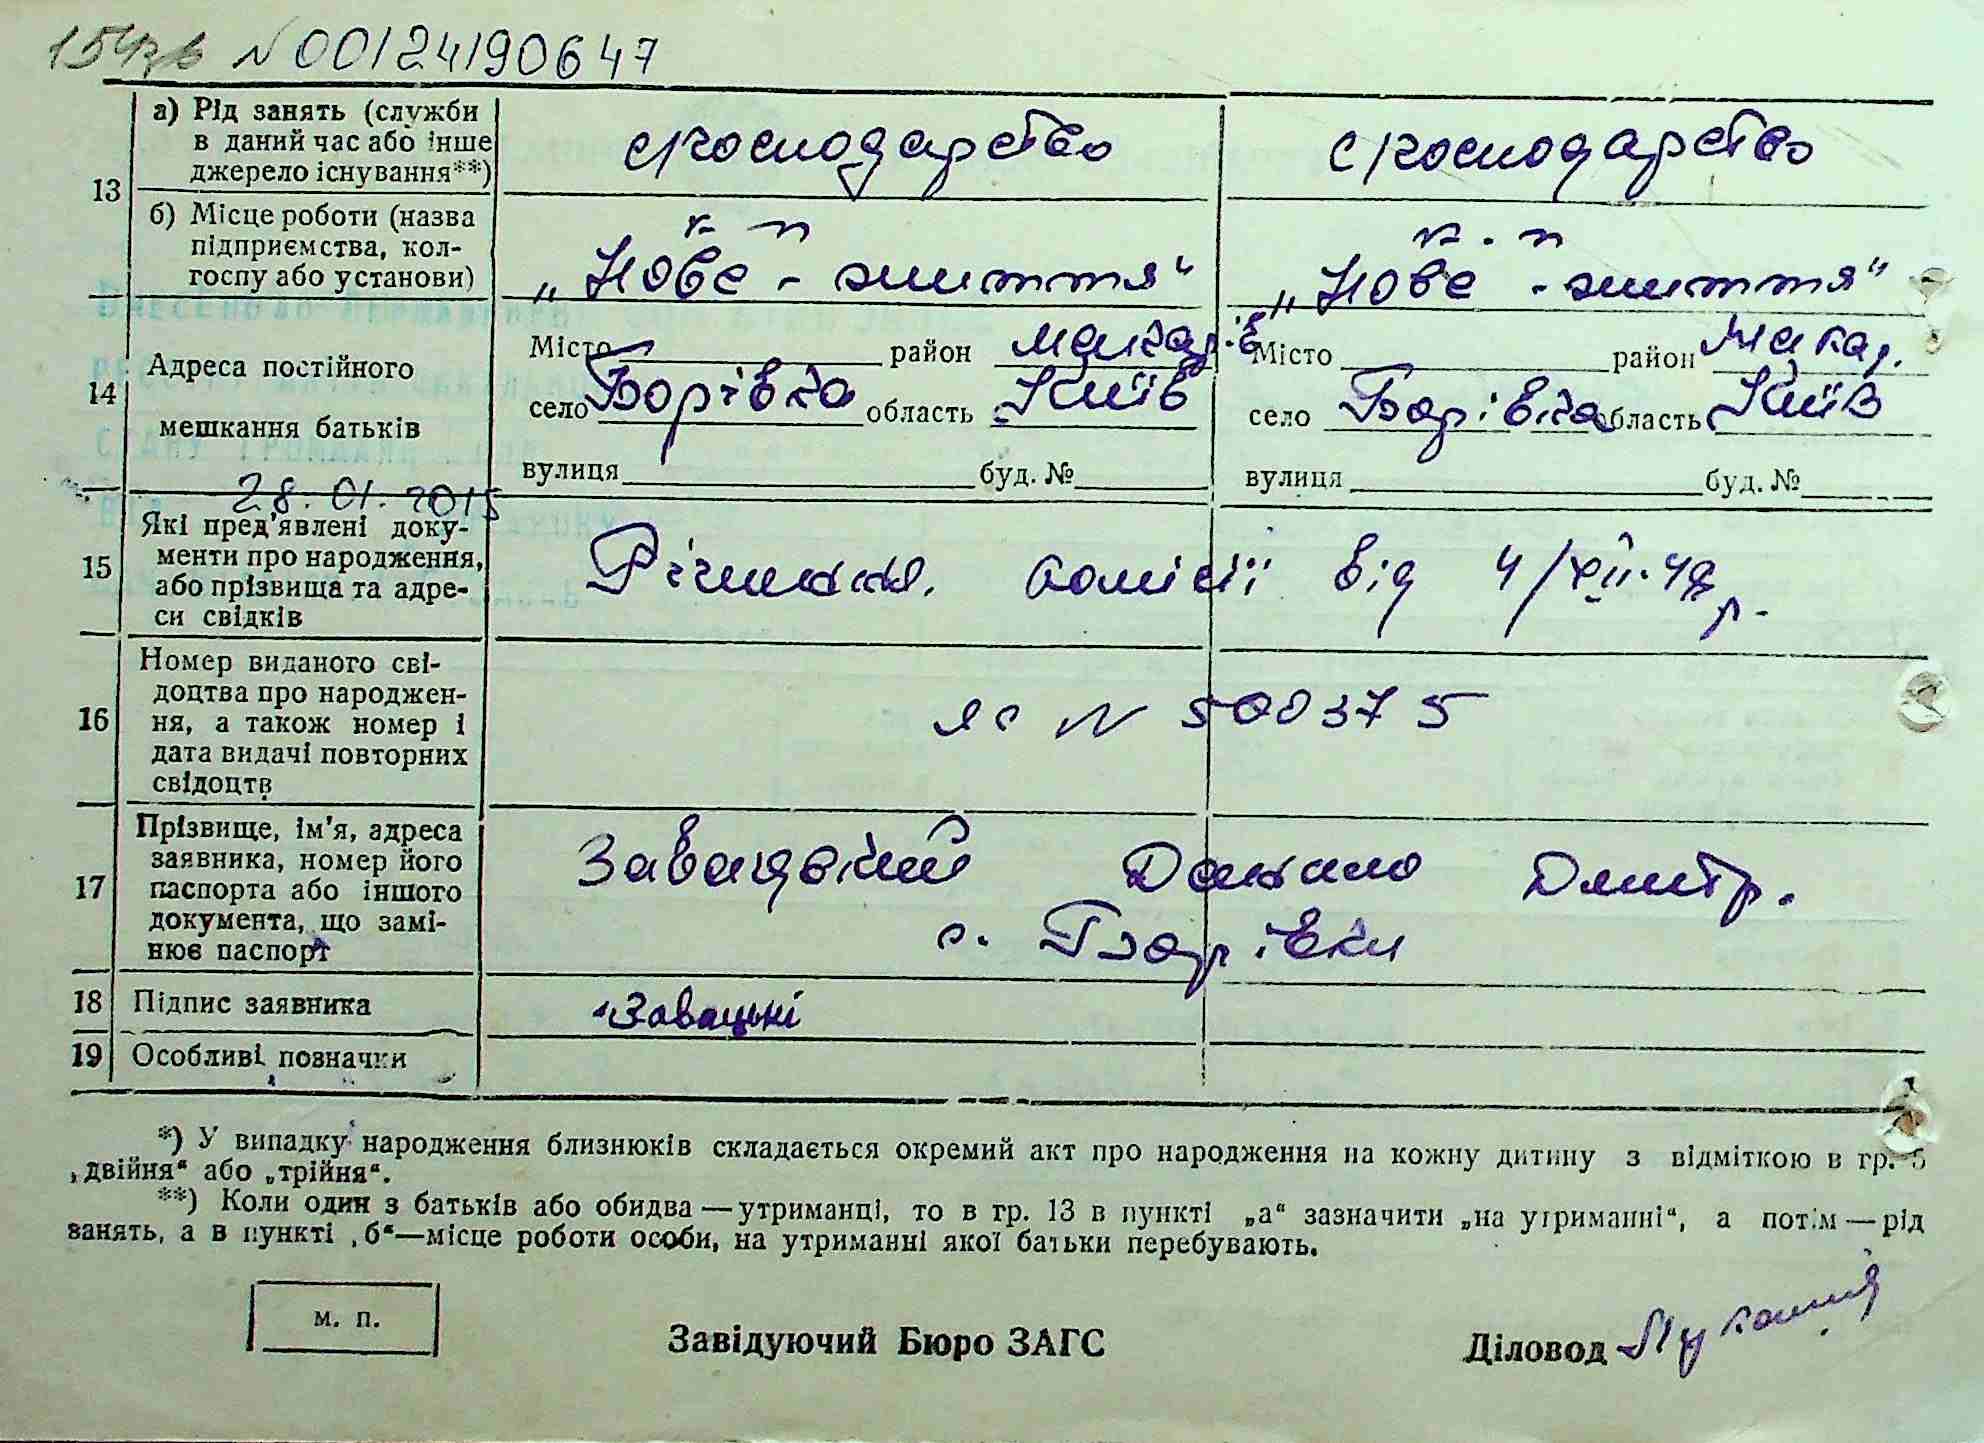 N 00124190647
13
а) Рід занять (служби в даний час або інше джерело існування**)
с/господарство
с/господарство
б) Місце роботи (назва підприємства, колгоспу або установи)
к-п „Нове-життя“
к-п „Нове-життя“
14
Адреса постійного мешкання батьків
Місто район Макарів
село Борівка область Київ
вулиця буд. №
Місто район Макар.
село Борівка область Київ
вулиця буд. №
28.01.2015
15
Які пред'явлені документи про народження, або прізвища та адреси свідків
Рішення комісії від 4/XII-
16
Номер виданого свідоцтва про народження, а також номер і дата видачі повторних свідоцтв
ЯС N 500375
17
Прізвище, ім'я, адреса заявника, номер його паспорта або іншого документа, що замінює паспорт
Завацький Данило Дмитр.
с. Борівки
18
Підпис заявника
Завацькі
19
Особливі позначки
*) У випадку народження близнюків складається окремий акт про народження на кожну дитину з відміткою в гр. 5
„двійня“ або „трійня“.
**) Коли один з батьків або обидва — утриманці, то в гр. 13 в пункті „а“ зазначити „на утриманні“, а потім — рід
занять, а в пункті „б“—місце роботи особи, на утриманні якої батьки перебувають.
м. п.
Завідуючий Бюро ЗАГС
Діловод